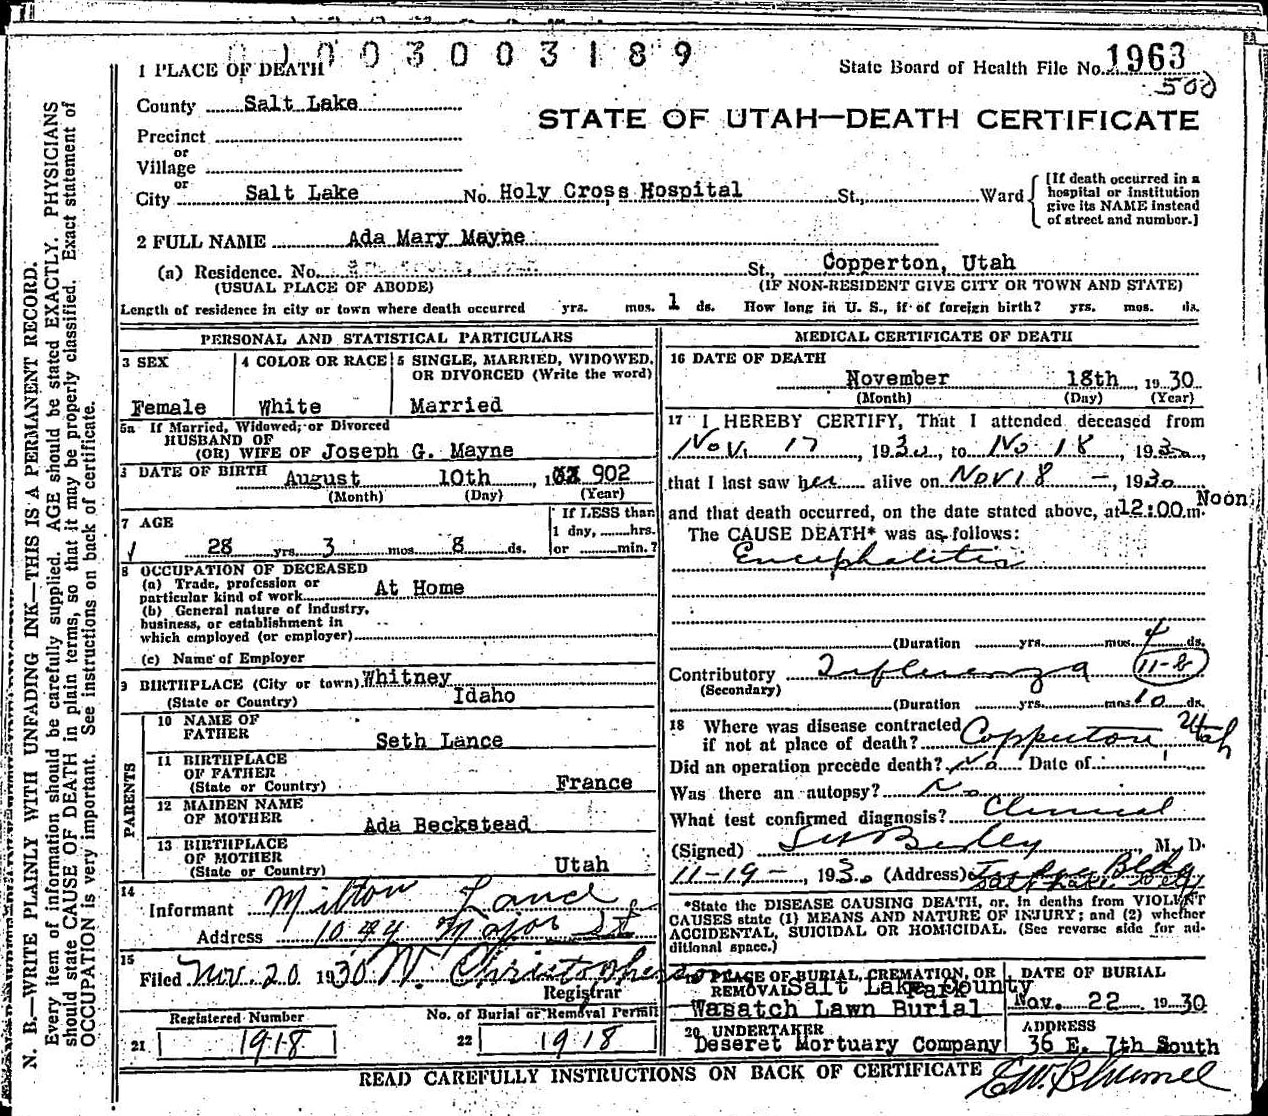 0 1 0 0 3 0 0 3 1 8 9
1 PLACE OF DEATH
State Board of Health File No. 1963
500
County Salt Lake
STATE OF UTAH—DEATH CERTIFICATE
Precinct
or
Village
or
City Salt Lake No. Holy Cross Hospital St., Ward
[If death occurred in a
hospital or institution
give its NAME instead
of street and number.]
2 FULL NAME Ada Mary Mayne
(a) Residence. No. St., Copperton, Utah
(USUAL PLACE OF ABODE) (IF NON-RESIDENT GIVE CITY OR TOWN AND STATE)
Length of residence in city or town where death occurred yrs. mos. 1 ds. How long in U. S., if of foreign birth? yrs. mos. ds.
PERSONAL AND STATISTICAL PARTICULARS
3 SEX
Female
4 COLOR OR RACE
White
5 SINGLE, MARRIED, WIDOWED,
OR DIVORCED (Write the word)
Married
5a If Married, Widowed, or Divorced
HUSBAND OF
(OR) WIFE OF Joseph G. Mayne
DATE OF BIRTH
August 10th, 1902
(Month) (Day) (Year)
7 AGE
28 yrs. 3 mos. 8 ds.
If LESS than
1 day, hrs.
or min.?
8 OCCUPATION OF DECEASED
(a) Trade, profession or
particular kind of work At Home
(b) General nature of industry,
business, or establishment in
which employed (or employer)
(c) Name of Employer
9 BIRTHPLACE (City or town) Whitney
(State or Country) Idaho
PARENTS
10 NAME OF
FATHER
Seth Lance
11 BIRTHPLACE
OF FATHER
(State or Country) France
12 MAIDEN NAME
OF MOTHER
Ada Beckstead
13 BIRTHPLACE
OF MOTHER
(State or Country) Utah
14
Informant Milton Lance
Address 1044 Major St
15
Filed Nov. 20 1930 W. Christopherson
Registrar
Registered Number
21 1918
No. of Burial or Removal Permit
22 1918
MEDICAL CERTIFICATE OF DEATH
16 DATE OF DEATH
November 18th, 1930
(Month) (Day) (Year)
17 I HEREBY CERTIFY, That I attended deceased from
Nov. 17, 1930, to No 18, 1930,
that I last saw her alive on Nov 18 -, 1930
and that death occurred, on the date stated above, at 12:00 m. Noon
The CAUSE DEATH* was as follows:
Encephalitis
(Duration yrs. mos. 4 ds.
Contributory Influenza 11-8
(Secondary)
(Duration yrs. mos. 10 ds.
18 Where was disease contracted
if not at place of death? Copperton, Utah
Did an operation precede death? No Date of
Was there an autopsy? No
What test confirmed diagnosis? Clinical
(Signed) M. D.
11-19-, 1930 (Address) Bldg
Salt Lake City
*State the DISEASE CAUSING DEATH, or, in deaths from VIOLENT
CAUSES state (1) MEANS AND NATURE OF INJURY; and (2) whether
ACCIDENTAL, SUICIDAL OR HOMICIDAL. (See reverse side for ad-
ditional space.)
19 PLACE OF BURIAL, CREMATION, OR
REMOVAL Salt Lake County
Park
Wasatch Lawn Burial
DATE OF BURIAL
Nov. 22 1930
20 UNDERTAKER
Deseret Mortuary Company
ADDRESS
36 E. 7th South
READ CAREFULLY INSTRUCTIONS ON BACK OF CERTIFICATE
N. B.—WRITE PLAINLY WITH UNFADING INK—THIS IS A PERMANENT RECORD.
Every item of information should be carefully supplied. AGE should be stated EXACTLY. PHYSICIANS
should state CAUSE OF DEATH in plain terms, so that it may be properly classified. Exact statement of
OCCUPATION is very important. See instructions on back of certificate.